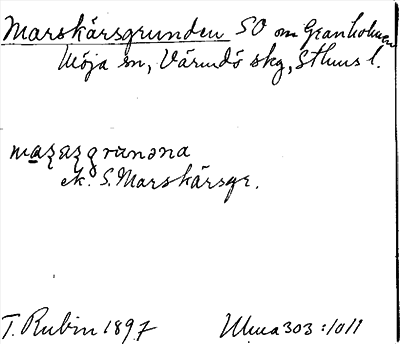 Marskärsgrunden SO om Granholmen
Möja sn, Värmdö skg, Sthms l.
ek. S. Marskärsgr.
T. Rubin 1897 Ulma 303:1011